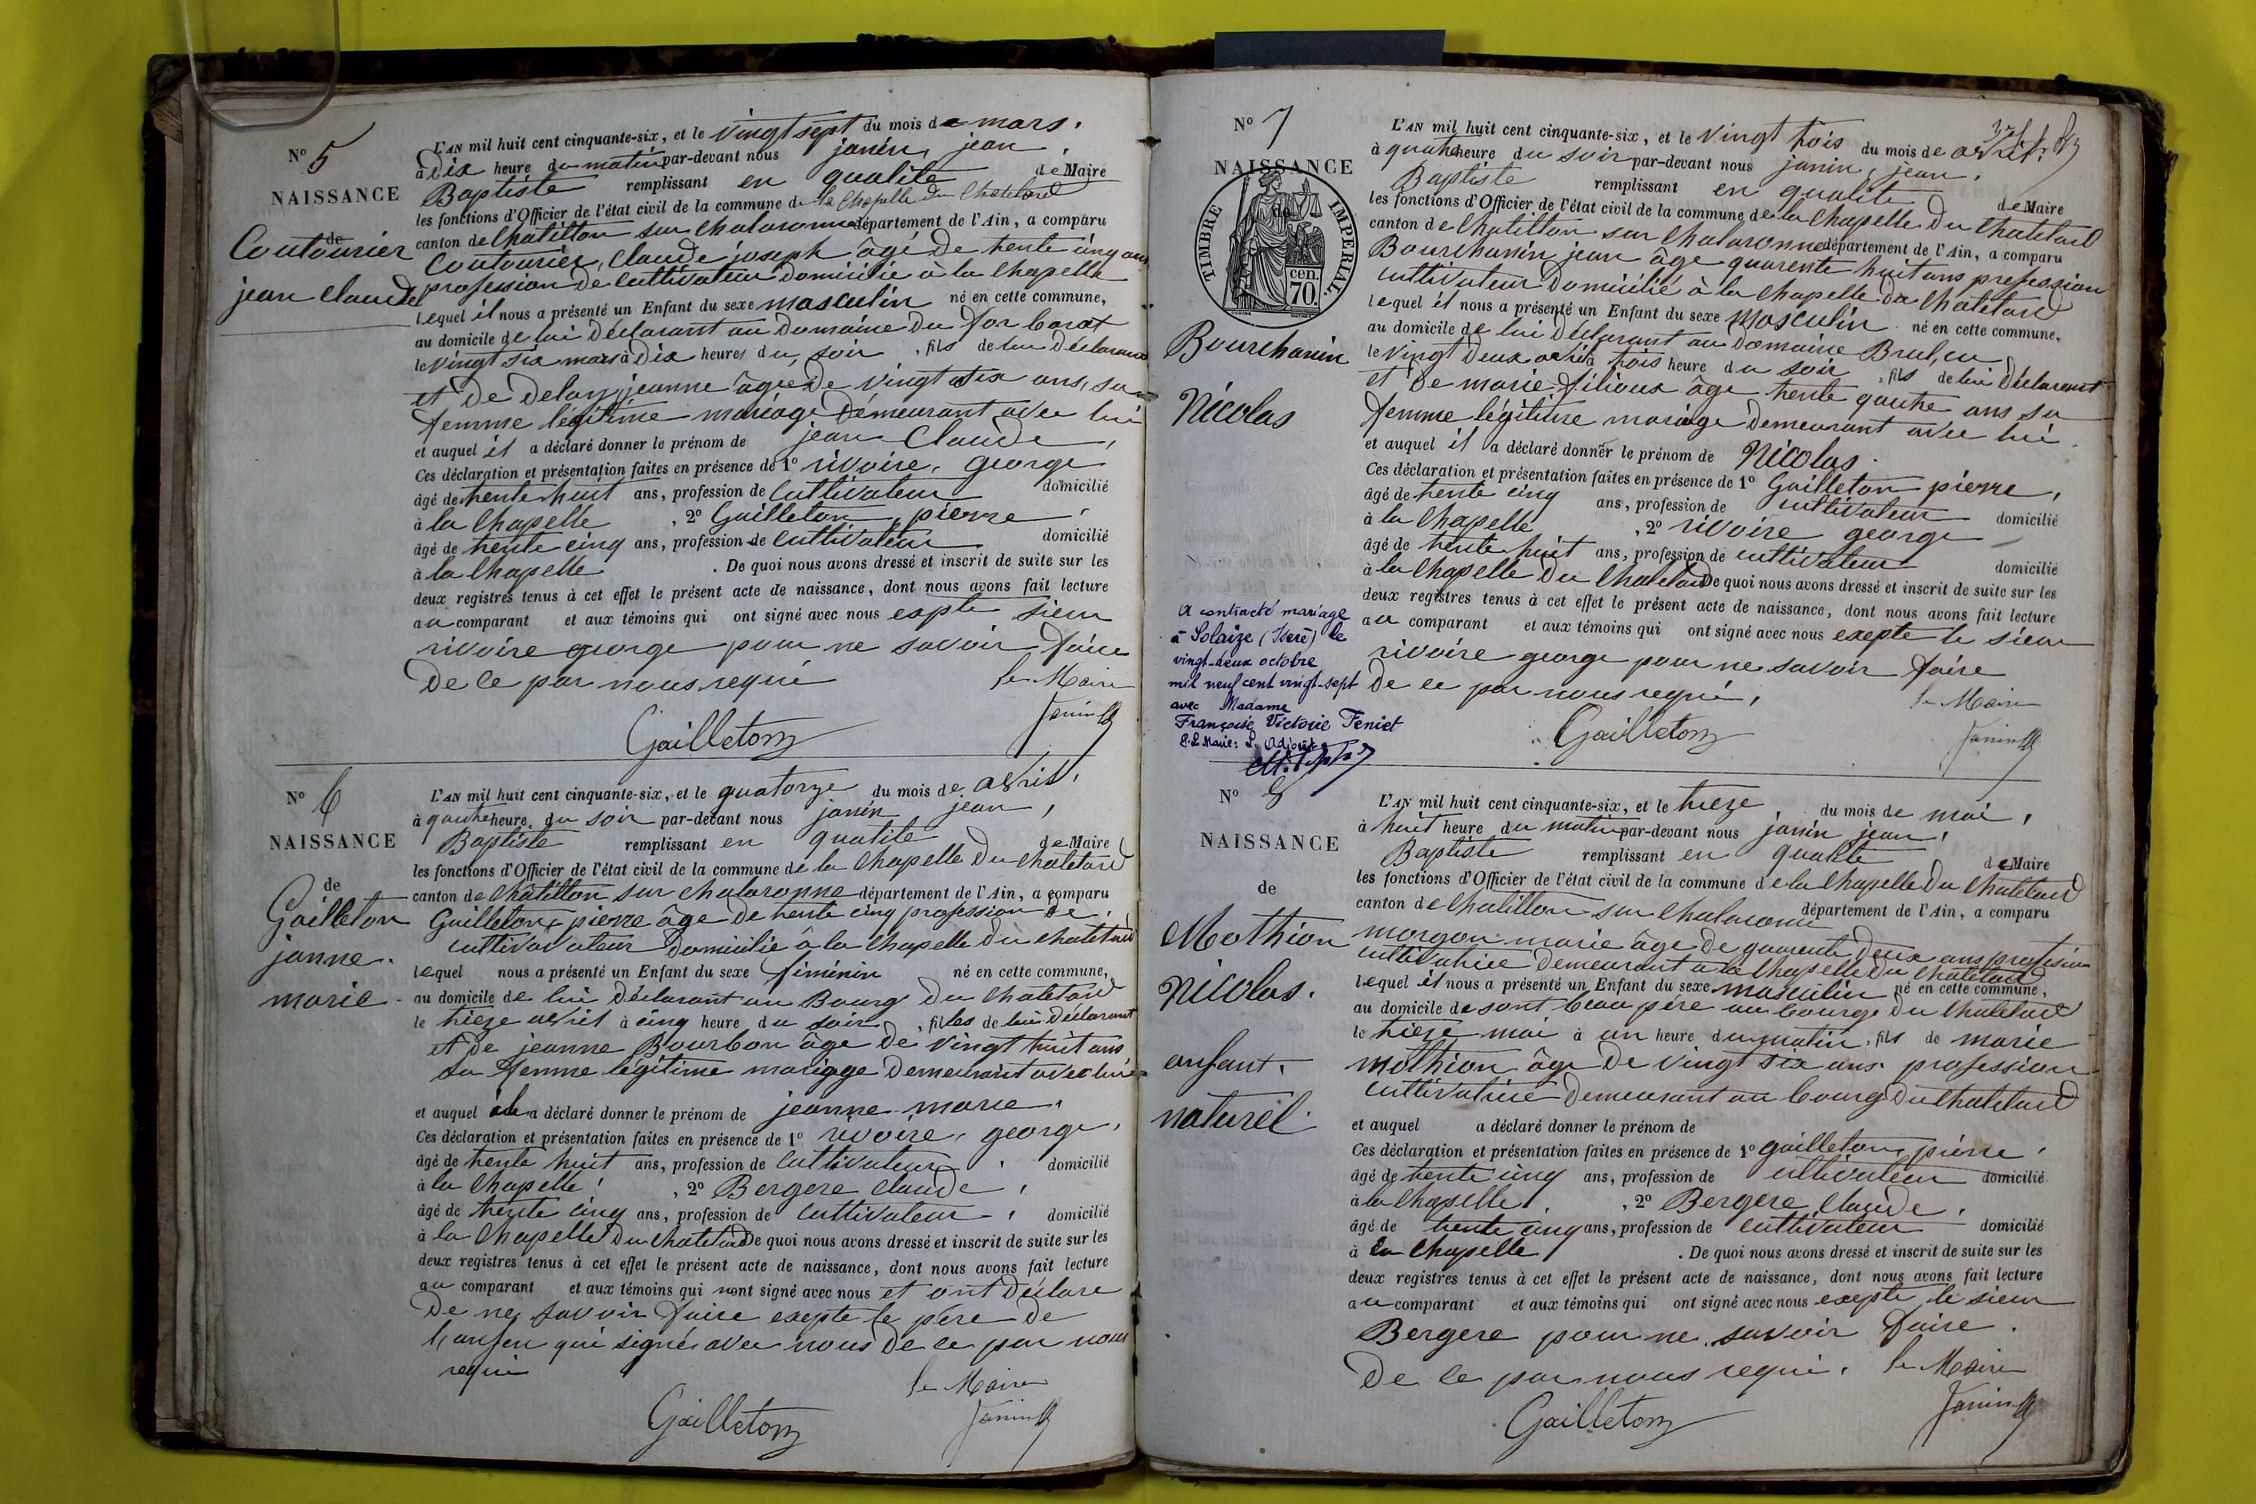 N° 5
NAISSANCE
de
Coutourier
jean Claude
L'AN mil huit cent cinquante-six, et le vingt sept du mois de mars.
à dix heure du matin par-devant nous janin, jean
Baptiste remplissant en qualite de Maire
les fonctions d'Officier de l'état civil de la commune de la Chapelle du Chatelard
canton de Chatillon sur Chalaronne département de l'Ain, a comparu
Coutourier, Claude joseph âgé de trente cinq ans
profession de Cultivateur domicilié à la Chapelle
lequel il nous a présenté un Enfant du sexe masculin né en cette commune,
au domicile de lui déclarant au Domaine du
le vingt six mars à dix heures du soir, fils de lui déclarant
et de Delay jeanne âgée de vingt six ans, sa
femme legitime mariage demeurant avec lui
et auquel il a déclaré donner le prénom de jean Claude,
Ces déclaration et présentation faites en présence de 1° rivoire, george
âgé de trente huit ans, profession de Cultivateur domicilié
à la Chapelle, 2° Gailleton, pierre,
âgé de trente cinq ans, profession de Cultivateur domicilié
à la Chapelle. De quoi nous avons dressé et inscrit de suite sur les
deux registres tenus à cet effet le présent acte de naissance, dont nous avons fait lecture
au comparant et aux témoins qui ont signé avec nous exepte sieur
rivoire george pour ne savoir faire
de ce par nous requi
le Maire
Gailleton
Janin
N° 6
NAISSANCE
de
Gailleton
janne.
marie.
L'AN mil huit cent cinquante-six, et le quatorze du mois de avril,
à quatre heure du soir par-devant nous janin jean,
Baptiste remplissant en qualite de Maire
les fonctions d'Officier de l'état civil de la commune de la Chapelle du Chatelard
canton de Châtillon sur Chalaronne département de l'Ain, a comparu
Gailleton, pierre âge de trente cinq profession de
cultivavateur domicilié à la Chapelle du chatelard
lequel nous a présenté un Enfant du sexe féminin né en cette commune,
au domicile de lui déclarant au Bourg du Chatelard
le treize avril à cinq heure du soir, filles de lui déclarant
et de jeanne Bourbon âge de vingt huit ans
sa femme légitime mariage demeurant avec lui
et auquel a déclaré donner le prénom de jeanne marie.
Ces déclaration et présentation faites en présence de 1° rivoire, george,
âgé de trente huit ans, profession de Cultivateur, domicilié
à la Chapelle, 2° Bergere Claude,
âgé de trente cinq ans, profession de Cultivateur, domicilié
à la Chapelle du Chatelard De quoi nous avons dressé et inscrit de suite sur les
deux registres tenus à cet effet le présent acte de naissance, dont nous avons fait lecture
au comparant et aux témoins qui nont signé avec nous et ont déclare
de ne savoir faire exepte le père de
qui signé avec nous de ce par nous
requi
le Maire
Gailleton
Janin
N° 7
NAISSANCE
de
TIMBRE IMPERIAL.
70. cen.
Bourchanin
Nicolas
A contracté mariage
à Solaize (Isère) le
vingt-deux octobre
mil neuf cent vingt-sept
avec Madame
Françoise Victorie Feniet
P. le Maire: L'Adjoint
L'AN mil huit cent cinquante-six, et le vingt trois du mois de avril.
à quatre heure du soir par-devant nous janin, jean,
Baptiste remplissant en qualité de Maire
les fonctions d'Officier de l'état civil de la commune de la Chapelle du Chatelard
canton de Chatillon sur Chalaronne département de l'Ain, a comparu
Bourchanin jean âge quarente huit ans profession
cultivateur domicilié à la Chapelle du Chatelard
lequel il nous a présenté un Enfant du sexe Masculin né en cette commune,
au domicile de lui déclarant au domaine
le vingt deux avril à trois heure du soir, fils de lui déclarant
et de marie filioux âge trente quatre ans sa
femme légitime mariage demeurant avec lui.
et auquel il a déclaré donner le prénom de Nicolas.
Ces déclaration et présentation faites en présence de 1° Gailleton pierre,
âgé de trente cinq ans, profession de Cultivateur domicilié
à la Chapelle, 2° rivoire george
âgé de trente huit ans, profession de cultivateur domicilié
à la Chapelle du Chatelard De quoi nous avons dressé et inscrit de suite sur les
deux registres tenus à cet effet le présent acte de naissance, dont nous avons fait lecture
au comparant et aux témoins qui ont signé avec nous exepte le sieur
rivoire george pour ne savoir faire
de ce par nous requi,
le Maire
Gailleton
Janin
N° 8
NAISSANCE
de
Mothion
Nicolas.
anfant.
naturel.
L'AN mil huit cent cinquante-six, et le treize du mois de mai,
à huit heure du matin par-devant nous janin jean,
Baptiste remplissant en qualité de Maire
les fonctions d'Officier de l'état civil de la commune de la Chapelle du Chatelard
canton de Chatillon sur Chalaronne département de l'Ain, a comparu
morgon marie âge de quarente deux ans profession
cultivatrice demeurant à la Chapelle du Chatelard
lequel il nous a présenté un Enfant du sexe masculin né en cette commune,
au domicile de sont beau père au bourge du Chatelard
le treize mai à un heure du matin, fils de marie
mothion âge de vingt six ans profession
cultivatrice demeurant au bourg du chatelard
et auquel a déclaré donner le prénom de
Ces déclaration et présentation faites en présence de 1° gailleton, pierre,
âgé de trente cinq ans, profession de cultivateur domicilié
à la Chapelle, 2° Bergere, Claude,
âgé de trente cinq ans, profession de cultivateur domicilié
à la Chapelle. De quoi nous avons dressé et inscrit de suite sur les
deux registres tenus à cet effet le présent acte de naissance, dont nous avons fait lecture
au comparant et aux témoins qui ont signé avec nous exepte le sieur
Bergere pour ne savoir faire.
de ce par nous requi. le Maire
Gailleton
Janin